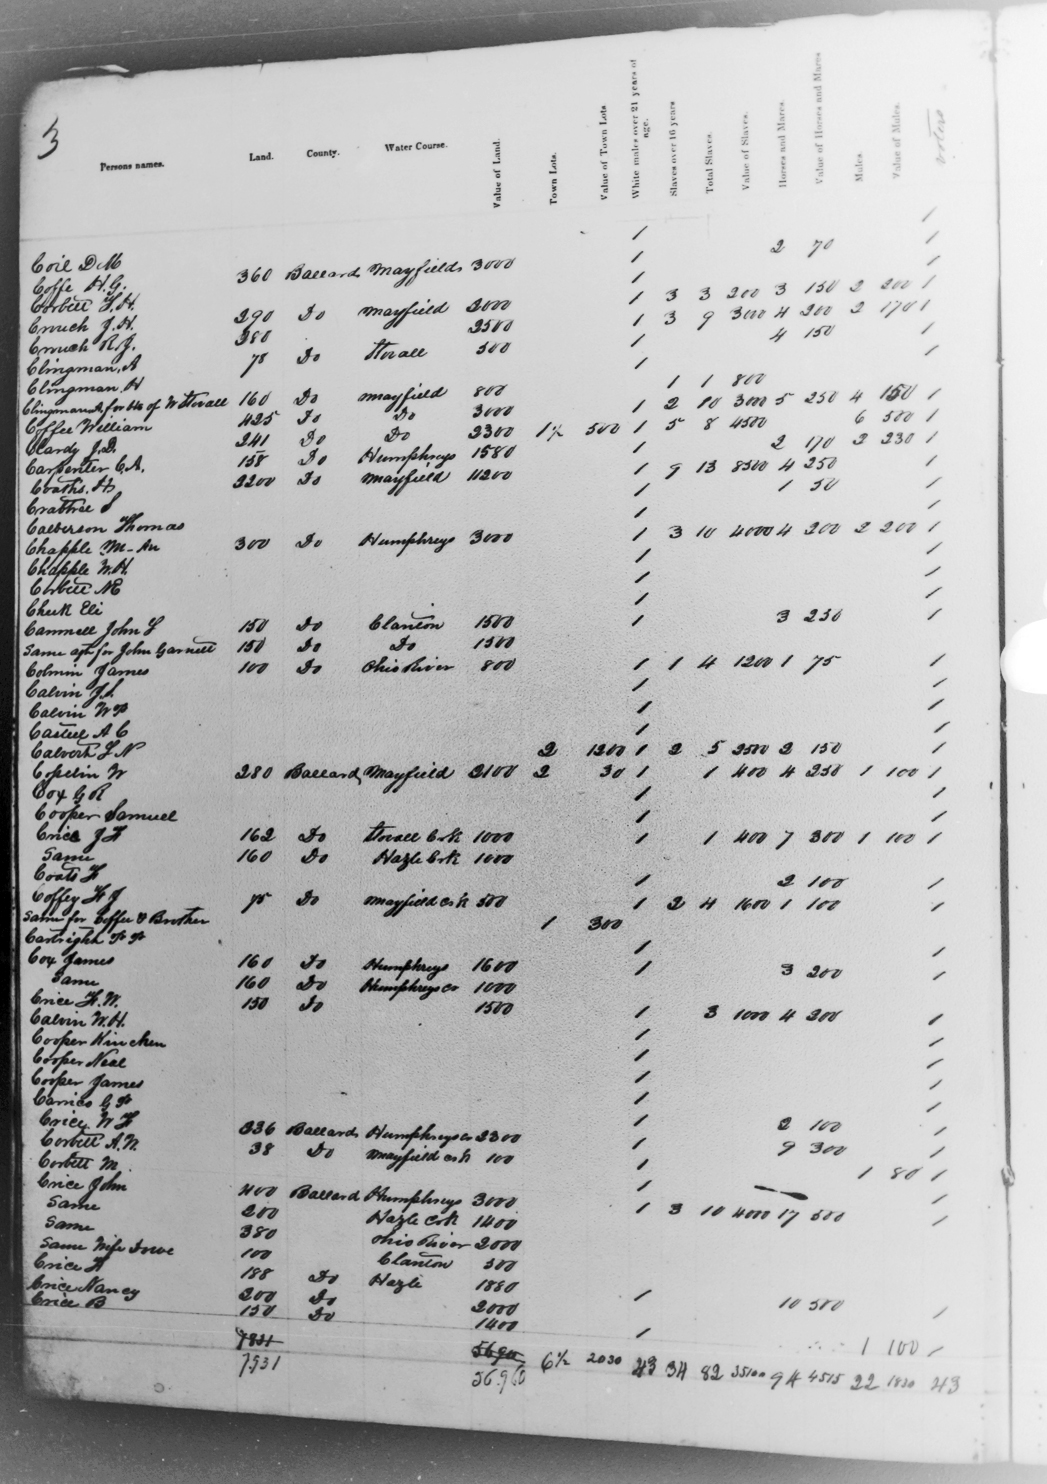 3
Persons names. Land. County. Water Course. Value of Land. Town Lots. Value of Town Lots White males over 21 years of age. Slaves over 16 years Total Slaves. Value of Slaves. Horses and Mares. Value of Horses and Mares Mules. Value of Mules.
Coil D M 1 1
Coffe H. G. 360 Ballard Mayfields 3000 1 2 70 1
Corbitt F. H. 1 1
Crouch J. H. 290 Do Mayfield 2000 1 3 3 200 3 150 2 200 1
Crouch R. J. 280 2500 1 3 9 3000 4 200 2 170 1
Clingman, A 75 Do Stovall 500 1 4 150 1
Clingman H 1 1
Clingman A, for Hrs of W Stovall 160 Do Mayfield 800 1 1 800
Coffee William 425 Do Do 3000 1 2 10 3000 5 250 4 150 1
Clardy J. D. 241 Do Do 3300 1½ 500 1 5 8 4500 6 500 1
Carpenter C. A. 158 Do Humphreys 1580 1 2 170 2 230 1
Coaths. H 2200 Do Mayfield 11200 1 9 13 8500 4 250
Crabtree S 1 1 50 1
Calverson Thomas 1 1
Chapple M-An 300 Do Humphreys 3000 1 3 10 4000 4 200 2 200 1
Chapple W. H. 1 1
Corbitt N E 1 1
Cheek Eli 1 1
Cammell John L 150 Do Clanton 1500 1 3 250 1
Same agt for John Garnett 150 Do Do 1500
Colmin James 100 Do Ohio River 800 1 1 4 1200 1 75 1
Calvin J. S. 1 1
Calvin W P 1 1
Casteel A C 1 1
Calvert L N 2 1200 1 2 5 2500 2 150 1
Copelin W 280 Ballard Mayfield 2100 2 30 1 1 400 4 250 1 100 1
Cox G R 1 1
Cooper Samuel 1 1
Crice J F 162 Do Stovall Crk 1000 1 1 400 7 300 1 100 1
Same 160 Do Hazle Crk 1000
Coats F 1 2 100 1
Coffey H J 75 Do Mayfield crk 500 1 2 4 1600 1 100 1
Same for Coffee & Brother 1 300
Cartright 1 1
Cox James 160 Do Humphreys 1600 1 3 200 1
Same 160 Do Humphreys cr 1000
Crice F. W. 150 Do 1500 1 3 1000 4 300 1
Calvin W. H. 1 1
Cooper Kinchen 1 1
Cooper Neal 1 1
Cooper James 1 1
Carrico G P 1 1
Crice W F 336 Ballards Humphreys cr 2300 1 2 100 1
Corbitt A. W. 38 Do Mayfield crk 100 1 9 300 1
Corbitt M. 1 1 80 1
Crice John 400 Ballard Humphreys 3000 1 3 10 4000 17 500 1
Same 200 Hazle Crk 1400
Same 380 Ohio River 2000
Same Wife 100 Clanton 500
Crice H 188 Do Hazle 1880 1 10 500 1
Crice Nancy 200 Do 2000
Crice B 150 Do 1400 1 1 100 1
7831
7931 56960 6½ 2030 43 34 82 35100 94 4515 22 1830 43